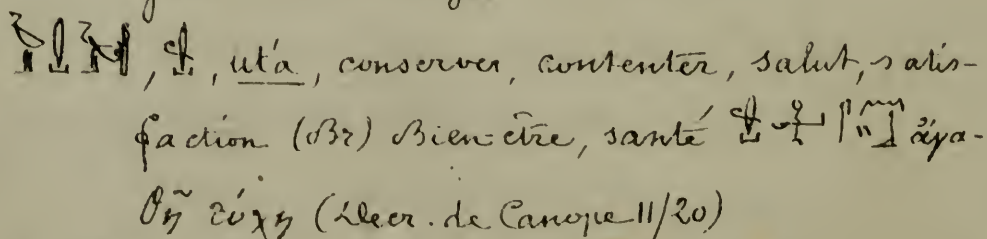 , , utá, conserver, contenter, salut, satis-
faction (Br) Bien-être, santé ἀγα-
θῇ τύχῃ (Decr. de Canope 11/20)